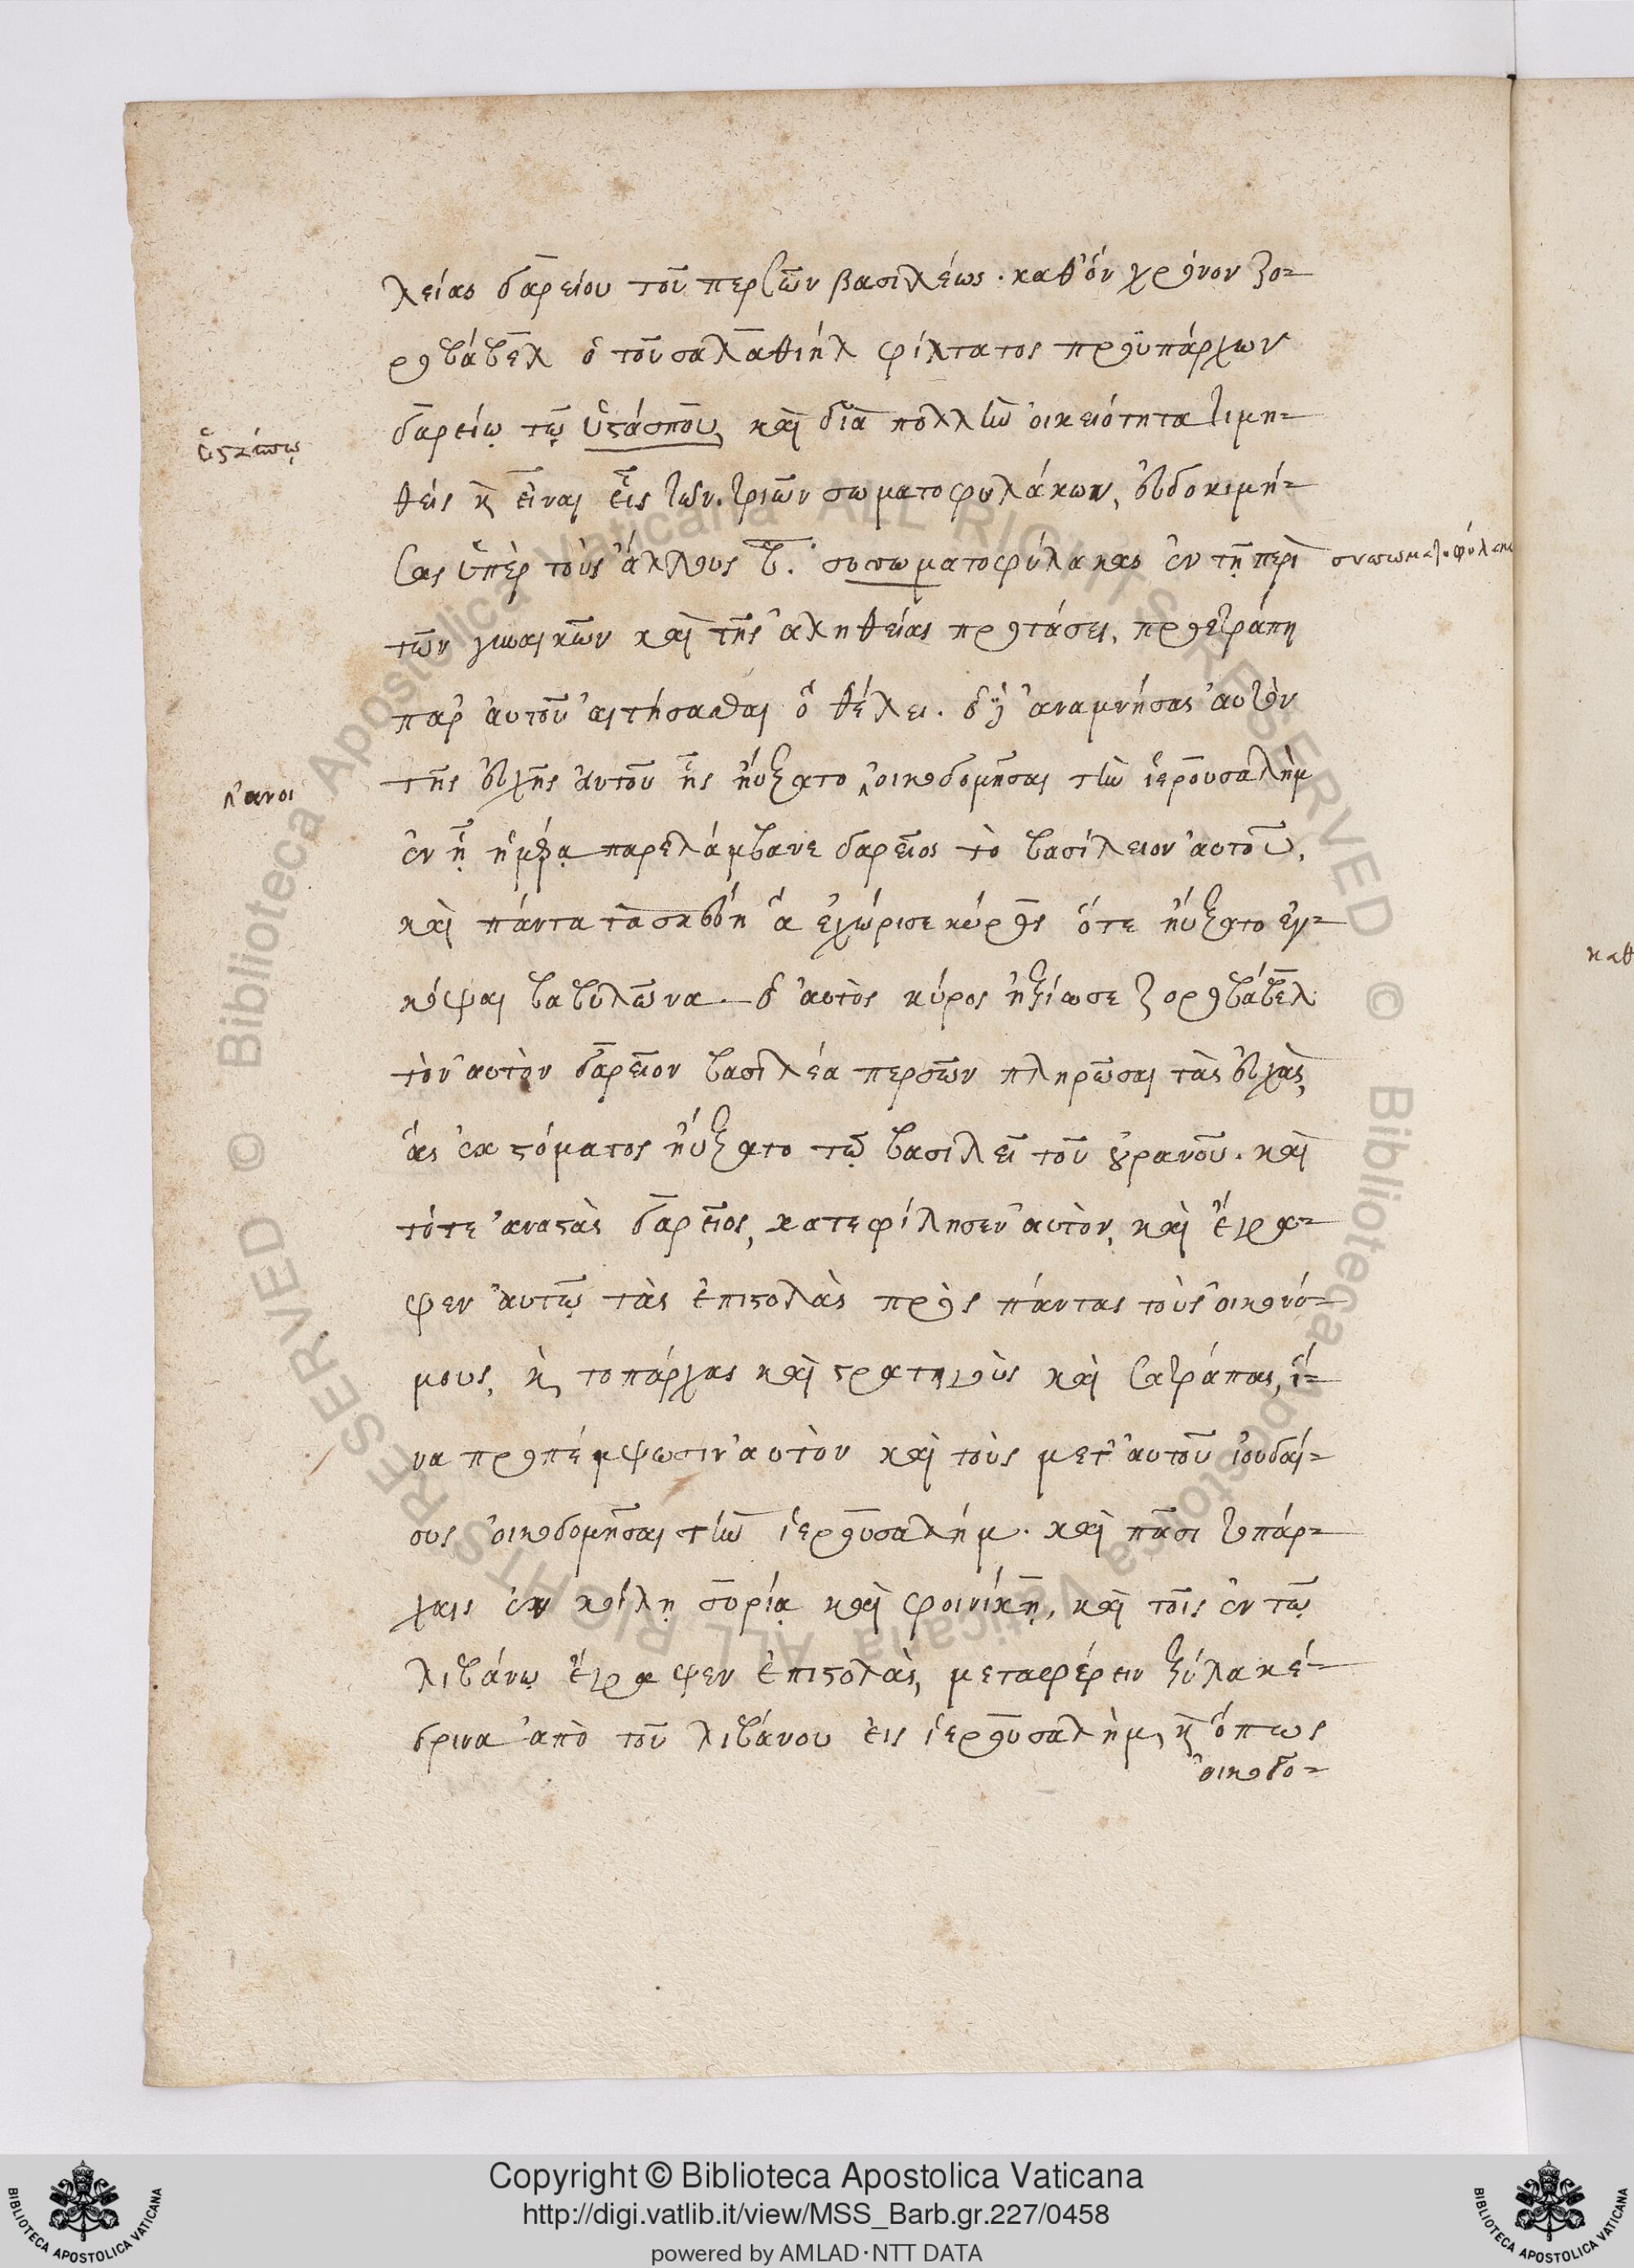 λείας δαρείου τοῦ περσῶν βασιλέως. καθ' ὃν χρόνον ζο-
ροβάβελ ὁ τοῦ σαλαθιήλ φίλτατος προϋπάρχων
ὑστάσπῳ
δαρείῳ τῷ ὑστάσπου, καὶ διὰ πολλὴν οἰκειότητα τιμη-
θεὶς κ εἶναι εἷς τῶν τριῶν σωματοφυλάκων, εὐδοκιμή-
σας ὑπὲρ τοὺς ἄλλους β. συσωματοφύλακας ἐν τῇ περὶ
συσσωματοφύλακας
τῶν γυναικῶν καὶ τῆς ἀληθείας προτάσει, προετράπη
παρ' αὐτοῦ αἰτήσασθαι ὃ θέλει. ὁ δὲ ἀναμνήσας αὐτὸν
τῆς εὐχῆς αὐτοῦ ἧς ηὔξατο οἰκοδομῆσαι τὴν ἱερουσαλὴμ
ἐν ᾗ ἡμέρᾳ παρελάμβανε δαρεῖος τὸ βασίλειον αὐτοῦ.
καὶ πάντα τὰ σκεύη ἃ ἐχώρισε κύρος ὅτε ηὔξατο ἐκ-
κόψαι βαβυλῶνα. ὁ αὐτὸς κύρος ἠξίωσε ζοροβάβελ
τὸν αὐτὸν δαρεῖον βασιλέα περσῶν πληρῶσαι τὰς εὐχὰς,
ἃς ἐκ στόματος ηὔξατο τῷ βασιλεῖ τοῦ οὐρανοῦ. καὶ
τότε ἀναστὰς δαρεῖος, κατεφίλησεν αὐτὸν, καὶ ἔγρα-
ψεν αὐτῷ τὰς ἐπιστολὰς πρὸς πάντας τοὺς οἰκονό-
μους, κ τοπάρχας καὶ στρατηγοὺς καὶ σατράπας, ἵ-
να προπέμψωσιν αὐτὸν καὶ τοὺς μετ' αὐτοῦ ἰουδαί-
ους οἰκοδομῆσαι τὴν ἱερουσαλήμ. καὶ πᾶσι τοπάρ-
χαις ἐν κοίλῃ συρίᾳ καὶ φοινίκῃ, καὶ τοῖς ἐν τῷ
λιβάνῳ ἔγραψεν ἐπιστολὰς, μεταφέρειν ξύλα κέ-
δρινα ἀπὸ τοῦ λιβάνου εἰς ἱερουσαλὴμ, κ ὅπως
οἰκοδο-
Copyright © Biblioteca Apostolica Vaticana
http://digi.vatlib.it/view/MSS_Barb.gr.227/0458
powered by AMLAD·NTT DATA